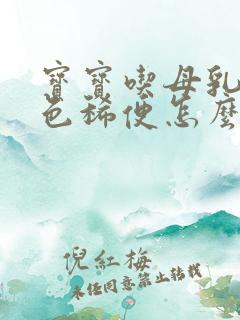 寶寶喫母乳
色稀便怎麼
倪紅梅
未經同意禁止轉載